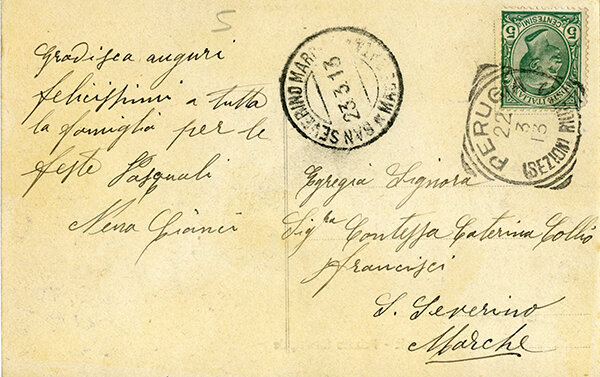 5
Gradisca auguri
felicissimi a tutta
la famiglia per le
feste Pasquali
Nena Cianci
SAN SEVERINO MARCHE
23.3.13
PERUG
22
3
13
5
CENTESIMI
Egregia Signora
Sig.ra Contessa Caterina Collio
Francisci
S. Severino
Marche